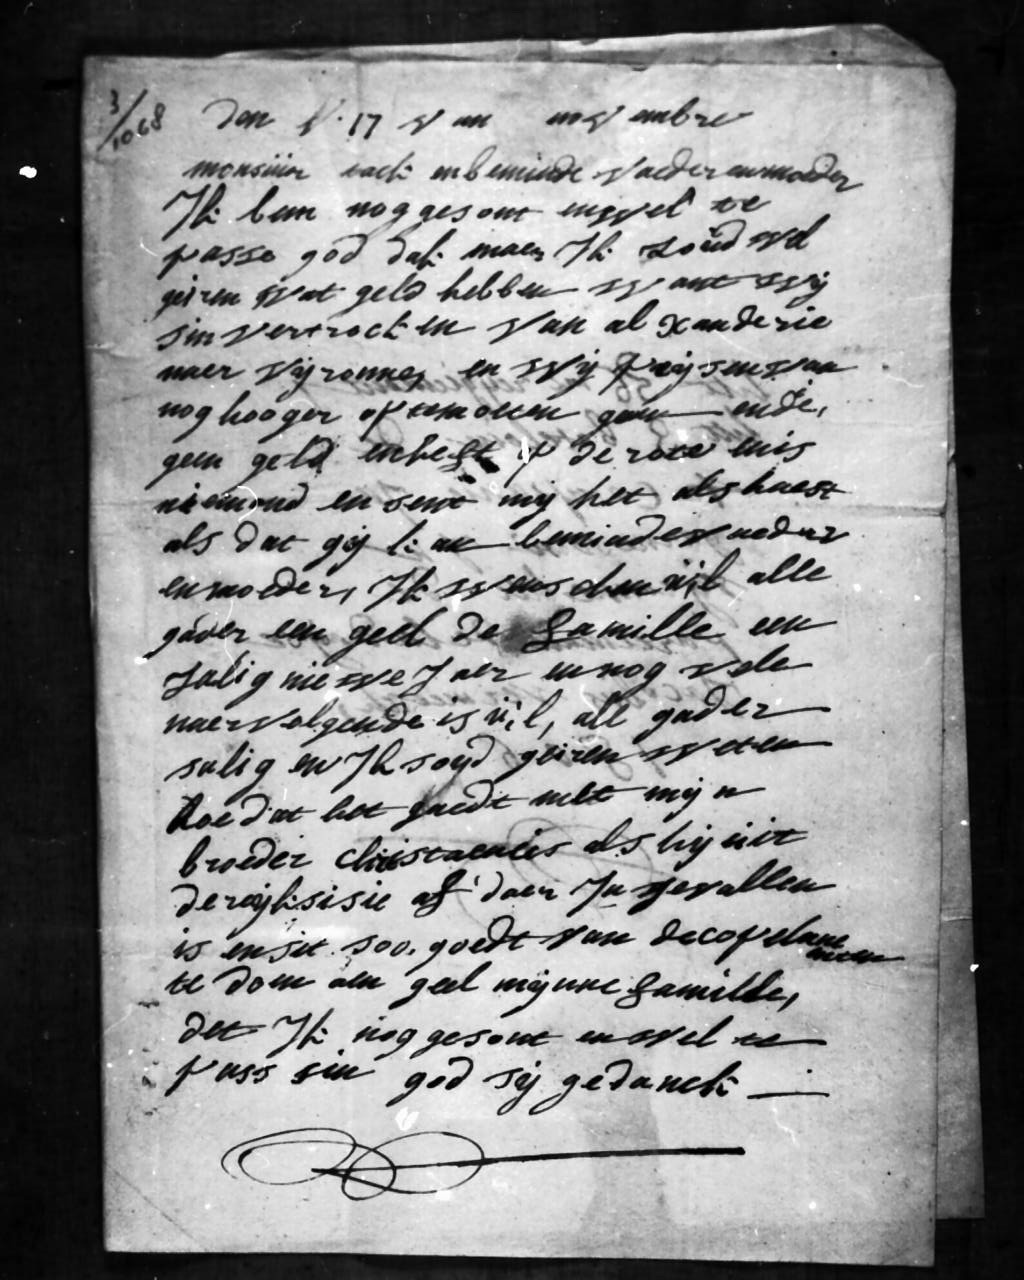 3/1068
Den N. 17 van november
monsiuer en beminde vaeder en moeder
Ik ben nog gesont en wel te
passe god dak maer Ik soud wel
geiren wat geld hebben want wij
sin vertrocken van alxanderie
naer vyronne, en wij
nog hooger op en geen ende,
geen geld en heft op de rote en is
niemand en sent mij het als haest
als dat gij kan beminde vaeder
en moeder, Ik wenschen uil alle
gader een geel de familie een
salig niewe Jaer en nog vele
naervolgende is uil, alle gader
salig en Ik soud geiren weten
hoe dat het gaedt met mijn
broeder als hij uit
de af daer In gevallen
is en sit soo goedt van
te doen aen geel mijnne familie,
det Ik nog gesont en wel te
pass sin god sij gedanck